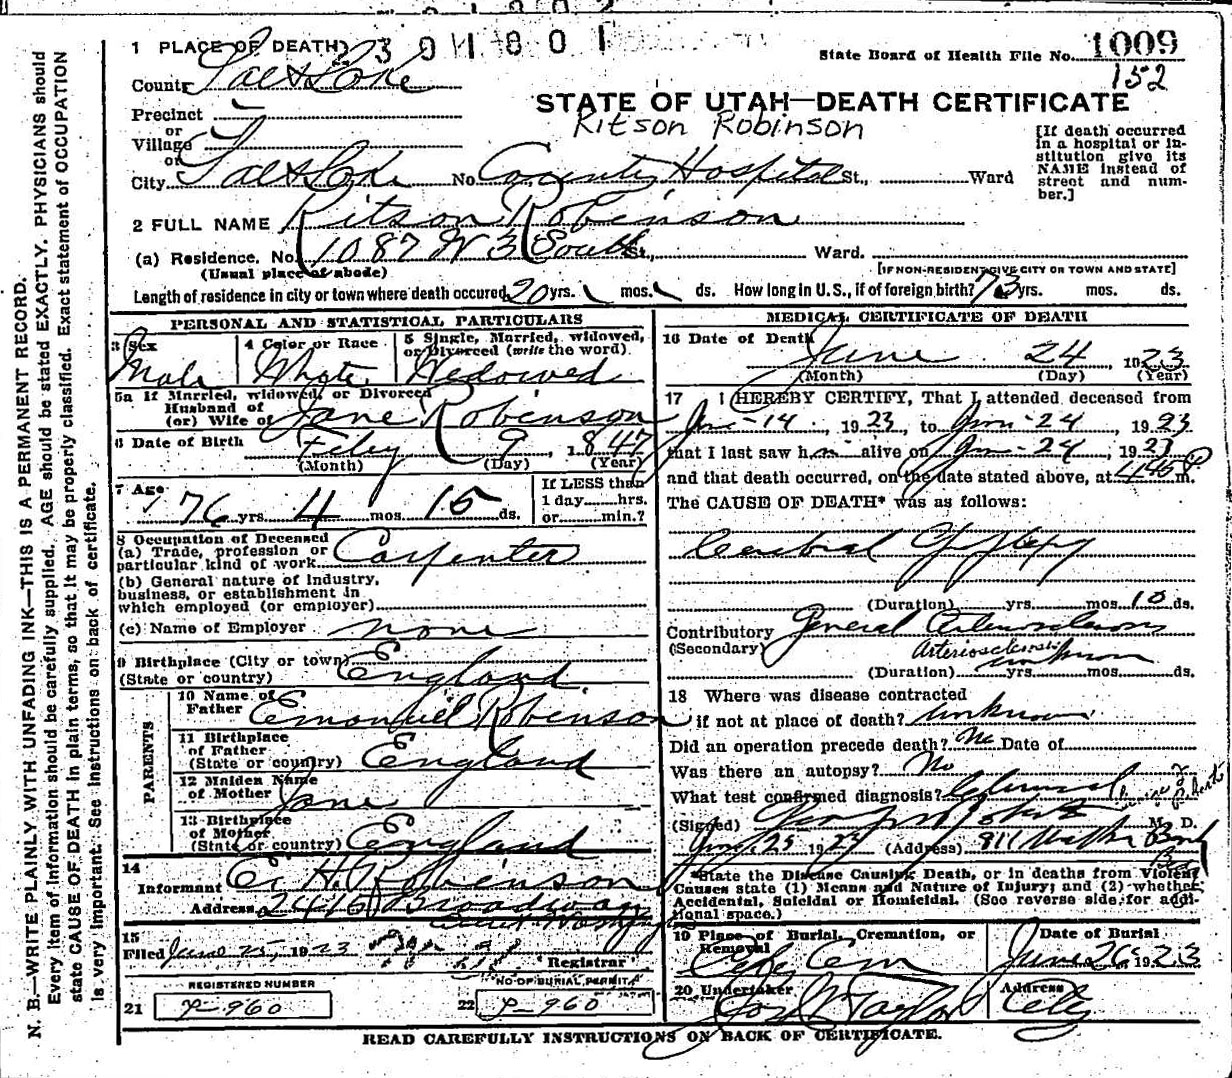 2301801
State Board of Health File No. 1009
152
1 PLACE OF DEATH
County Salt Lake
STATE OF UTAH—DEATH CERTIFICATE
Ritson Robinson
Precinct
or
Village
or
City Salt Lake No. County Hospital St., Ward
[If death occurred
in a hospital or in-
stitution give its
NAME instead of
street and num-
ber.]
2 FULL NAME Ritson Robinson
(a) Residence. No. 1087 W 3 South St., Ward.
(Usual place of abode)
[IF NON-RESIDENT GIVE CITY OR TOWN AND STATE]
Length of residence in city or town where death occured 20 yrs. mos. ds. How long in U.S., if of foreign birth? 73 yrs. mos. ds.
PERSONAL AND STATISTICAL PARTICULARS
3 Sex
Male
4 Color or Race
White
5 Single, Married, widowed,
or Divorced (write the word)
Widowed
5a If Married, widowed, or Divorced
Husband of
(or) Wife of Jane Robinson
6 Date of Birth Feby 9, 1847
(Month) (Day) (Year)
7 Age
76 yrs. 4 mos. 15 ds.
If LESS than
1 day hrs.
or min.?
8 Occupation of Deceased
(a) Trade, profession or
particular kind of work Carpenter
(b) General nature of Industry,
business, or establishment in
which employed (or employer)
(c) Name of Employer none
9 Birthplace (City or town)
(State or country) England
PARENTS
10 Name of
Father Emanuel Robinson
11 Birthplace
of Father
(State or country) England
12 Maiden Name
of Mother Jane
13 Birthplace
of Mother
(State or country) England
14
Informant H. Robinson
Address 2416 Broadway
15
Filed June 25, 1923
Registrar
REGISTERED NUMBER
21 P-960
NO OF BURIAL PERMIT
22 P-960
MEDICAL CERTIFICATE OF DEATH
16 Date of Death
June 24 1923
(Month) (Day) (Year)
17 I HEREBY CERTIFY, That I attended deceased from
Jun-14, 1923, to Jun-24, 1923
that I last saw him alive on Jun-24, 1923
and that death occurred, on the date stated above, at 445 P m.
The CAUSE OF DEATH* was as follows:
Cerebral
(Duration) yrs. mos. 10 ds.
Contributory General Arteriosclerosis
(Secondary)
Arteriosclerosis
unknown
(Duration) yrs. mos. ds.
18 Where was disease contracted
if not at place of death? unknown
Did an operation precede death? No Date of
Was there an autopsy? No
What test confirmed diagnosis? Clinical
(Signed) M. D.
Jun 25 1923 (Address) 811
*State the Disease Causing Death, or in deaths from Violent
Causes state (1) Means and Nature of Injury; and (2) whether
Accidental, Suicidal or Homicidal. (See reverse side for addi-
tional space.)
19 Place of Burial, Cremation, or
Removal
City Cem
Date of Burial
June 26, 1923
20 Undertaker
Jos Wm Taylor
Address
City
READ CAREFULLY INSTRUCTIONS ON BACK OF CERTIFICATE.
N. B.—WRITE PLAINLY WITH UNFADING INK—THIS IS A PERMANENT RECORD.
Every item of information should be carefully supplied. AGE should be stated EXACTLY. PHYSICIANS should
state CAUSE OF DEATH in plain terms, so that it may be properly classified. Exact statement of OCCUPATION
is very important. See instructions on back of certificate.